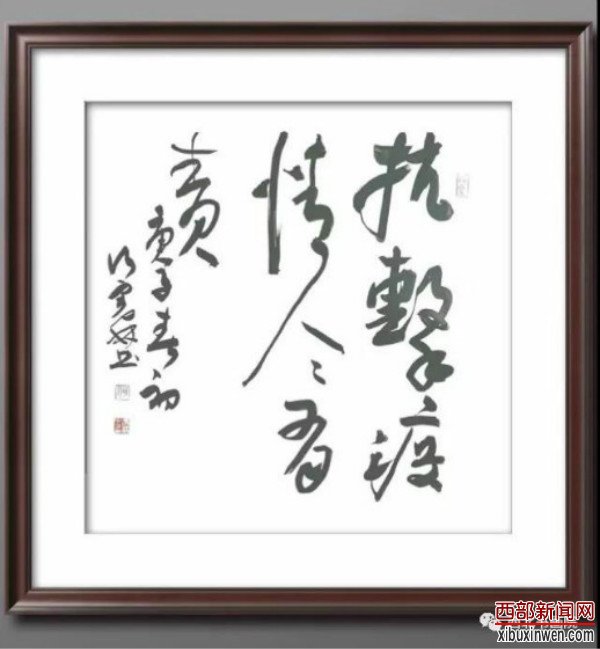 抗擊疫
情人人有
責
庚子春初
書
西部新闻网
xibuxinwen.com